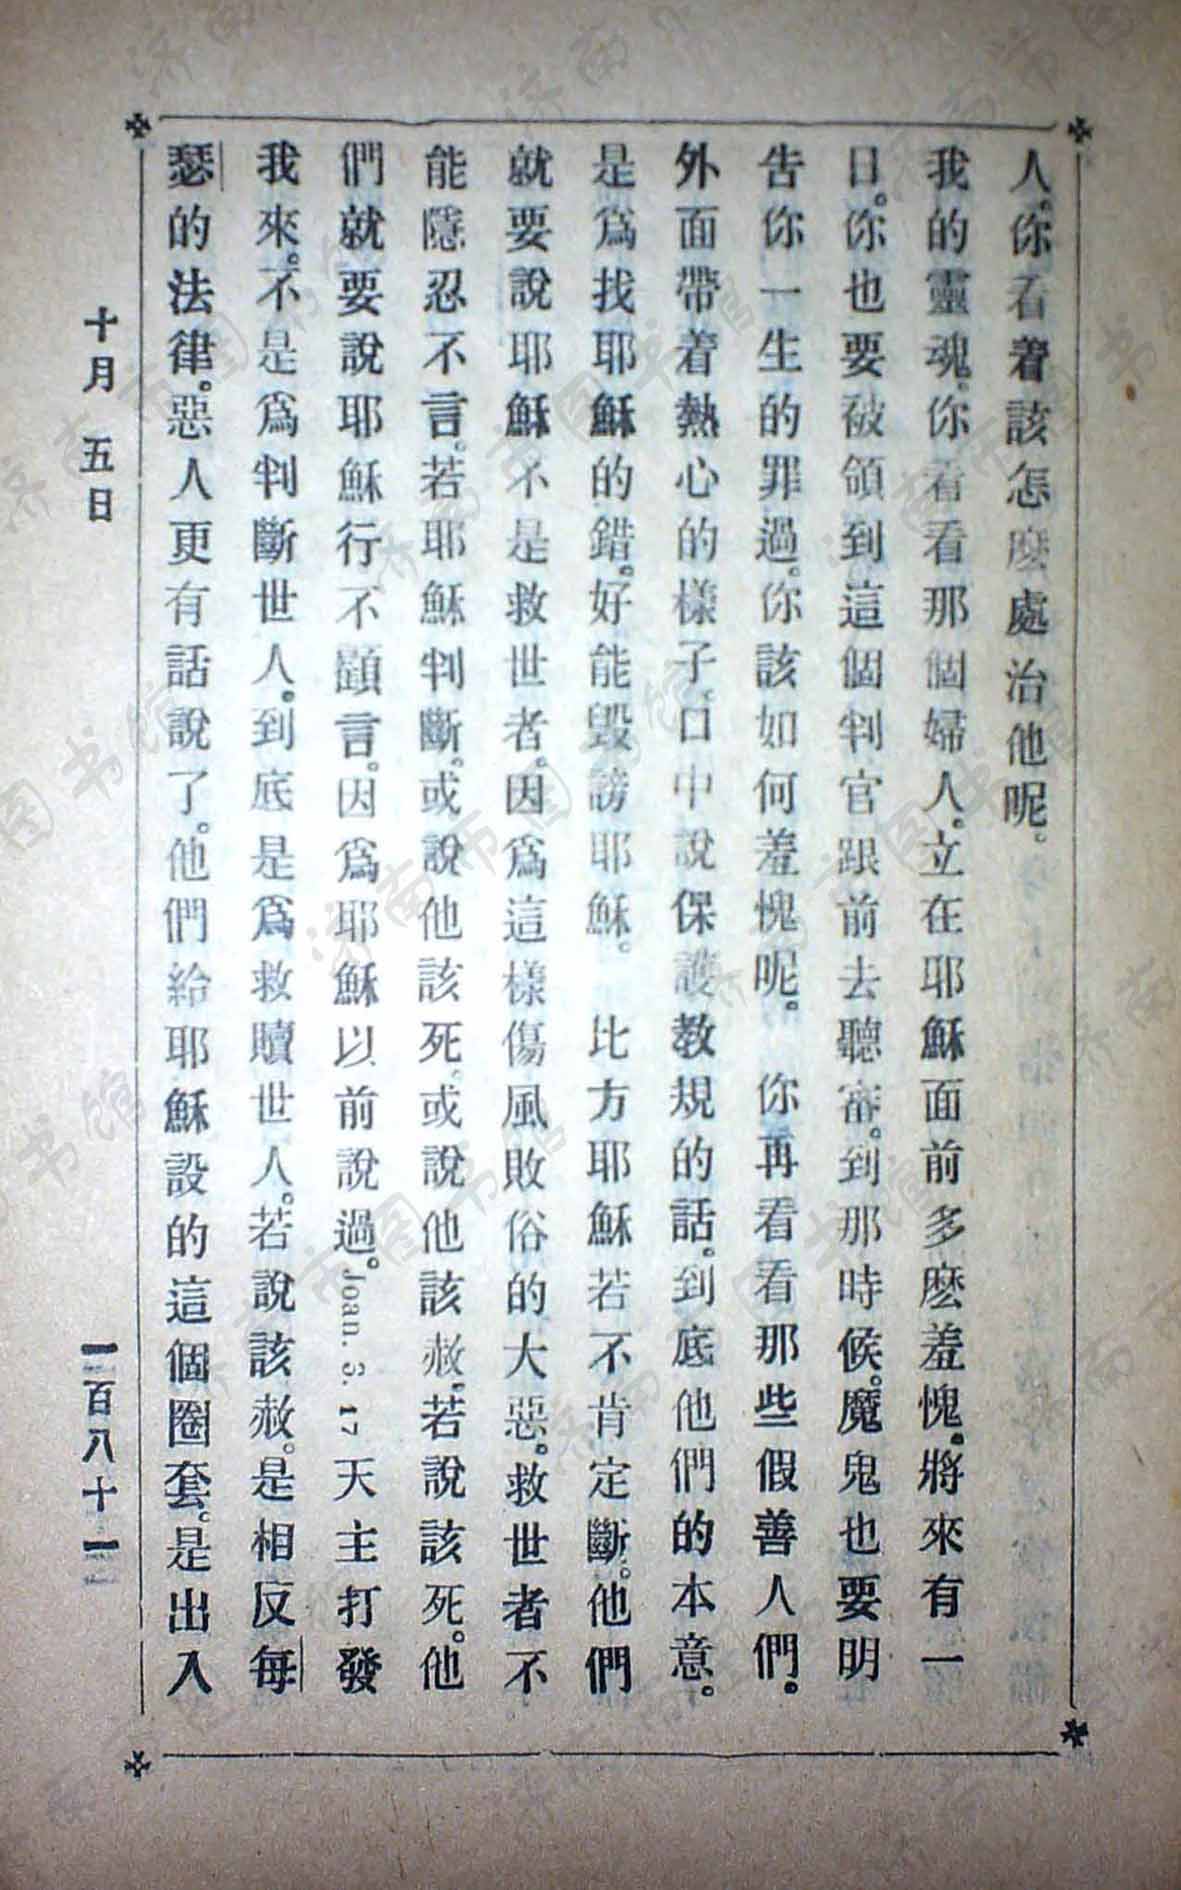 人。你看着該怎麽處治他呢。
我的靈魂。你看看那個婦人。立在耶穌面前多麽羞愧。將來有一
日。你也要被領到這個判官跟前去聽審。到那時候。魔鬼也要明
告你一生的罪過。你該如何羞愧呢。 你再看看那些假善人們。
外面帶着熱心的樣子。口中說保護教規的話。到底他們的本意。
是爲找耶穌的錯。好能毀謗耶穌。 比方耶穌若不肯定斷。他們
就要說耶穌不是救世者。因爲這樣傷風敗俗的大惡。救世者不
能隱忍不言。若耶穌判斷。或說他該死。或說他該赦。若說該死。他
們就要說耶穌行不顧言。因爲耶穌以前說過。Joan. 3. 17 天主打發
我來。不是爲判斷世人。到底是爲救贖世人。若說該赦。是相反每
瑟的法律。惡人更有話說了。他們給耶穌設的這個圈套。是出入
十月 五日
一百八十一